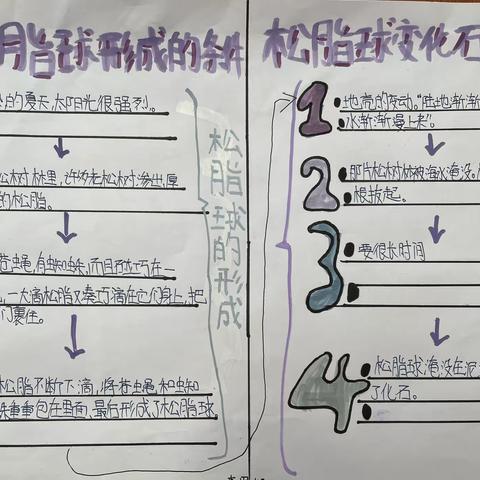 脂球形成的条件
的夏天,太阳光很强烈。
松树林里,许多老松树渗出厚
的松脂。
苍蝇,有蜘蛛,而且巧在一
一大滴松脂又凑巧滴在它们身上,把
们裹住。
松脂不断下滴,将苍蝇和蜘
蛛重重包在里面,最后形成了松脂球。
松脂球的形成
松脂球变化石
1
地壳的变动。"陆地渐渐
水渐渐漫上来"。
2
那片松树林被海水淹没。
根拔起。
3
要很长时间
4
松脂球淹没在泥
了化石。